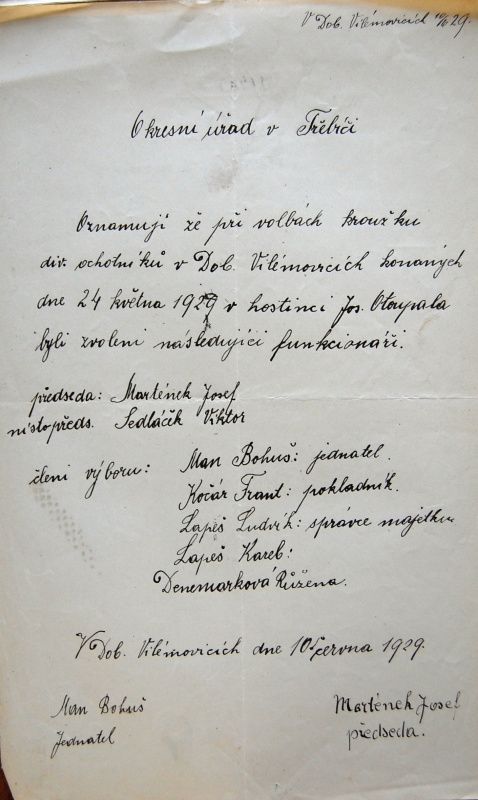 V Dob. Vilémovicích 10/6 29.
Okresní úřad v Třebíči
Oznamuji že při volbách kroužku
div. ochotníků v Dob. Vilémovicích konaných
dne 24 května 1929 v hostinci Jos. Otoupala
byli zvoleni následující funkcionáři.
předseda: Martének Josef
místopředs. Sedláčik Viktor
členi výboru: Man Bohuš: jednatel.
Kočár Frant: pokladník.
Lapeš Ludvík: správce majetku
Lapeš Karel:
Denemarková Růžena.
V Dob. Vilémovicích dne 10 června 1929.
Man Bohuš
Jednatel
Martének Josef
předseda.